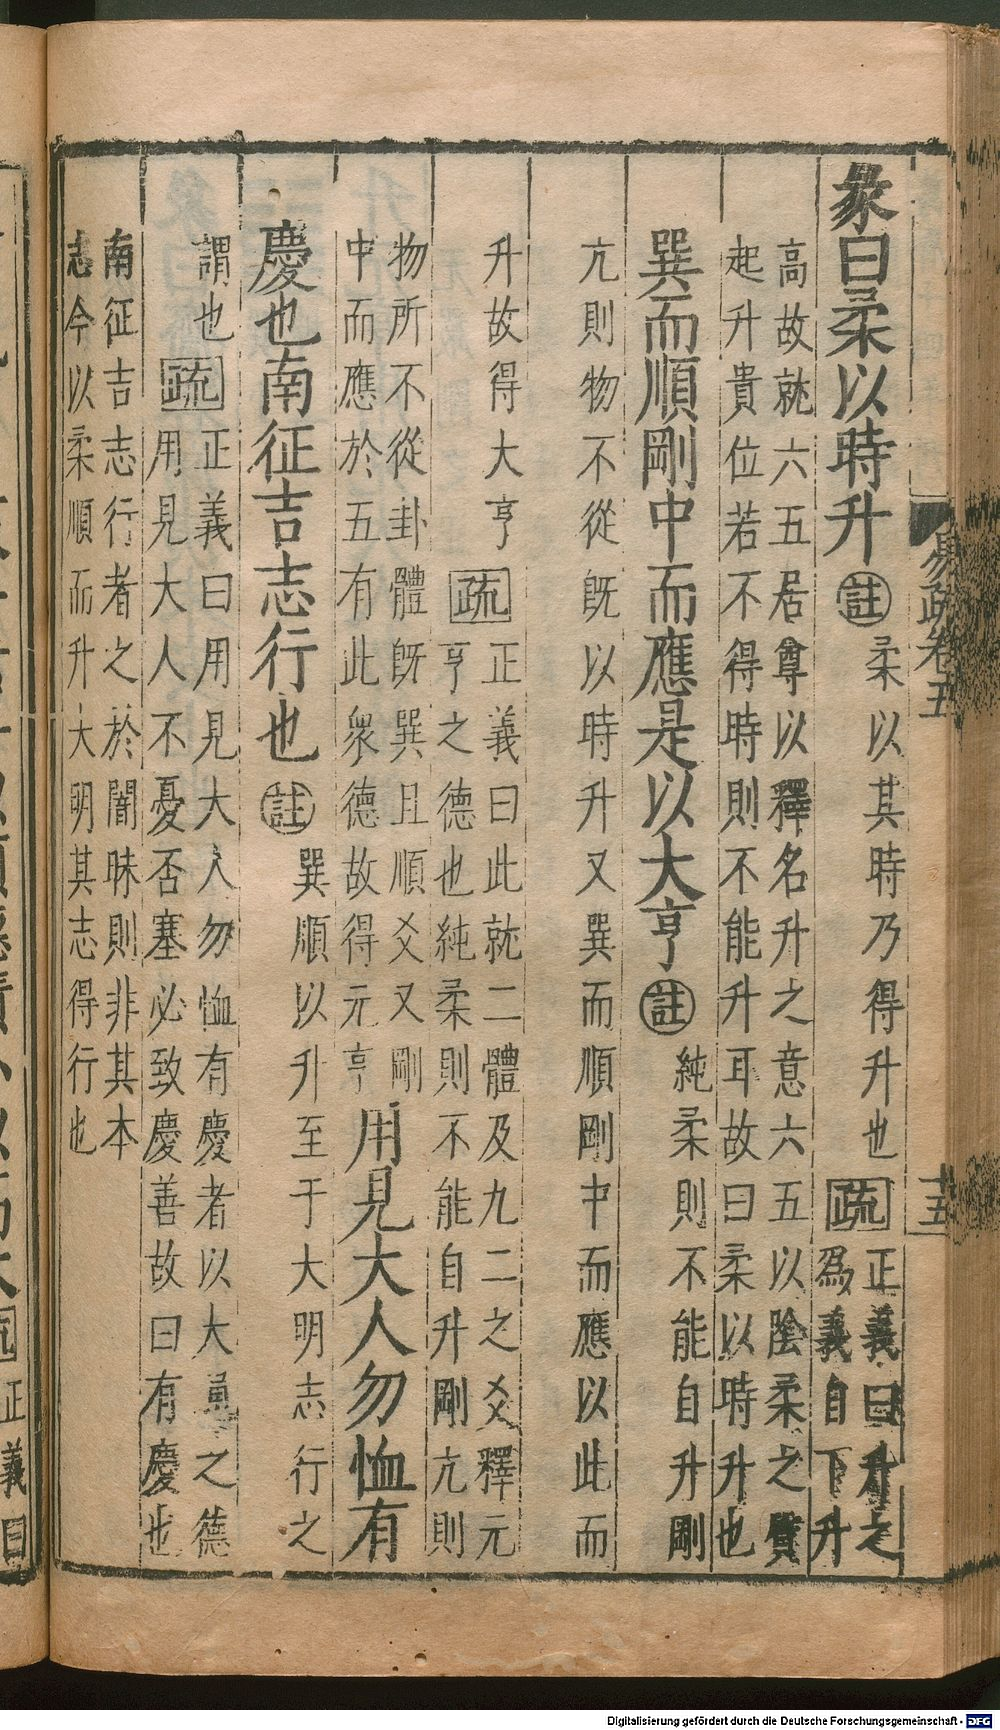 彖曰柔以時升註柔以其時乃得升也疏正義曰升之
爲義自下升
高故就六五居尊以釋名升之意六五以陰柔之質
起升貴位若不得時則不能升耳故曰柔以時升也
巽而順剛中而應是以大亨註純柔則不能自升剛
亢則物不從既以時升又巽而順剛中而應以此而
升故得大亨疏正義曰此就二體及九二之爻釋元
亨之德也純柔則不能自升剛亢則
物所不從卦體既巽且順爻又剛
中而應於五有此衆德故得元亨用見大人勿恤有
慶也南征吉志行也註巽順以升至于大明志行之
謂也疏正義曰用見大人勿恤有慶者以大通之德
用見大人不憂否塞必致慶善故曰有慶也
南征吉志行者之於闇昧則非其本
志今以柔順而升大明其志得行也
易疏卷五
十五
正義曰
Digitalisierung gefördert durch die Deutsche Forschungsgemeinschaft - DFG